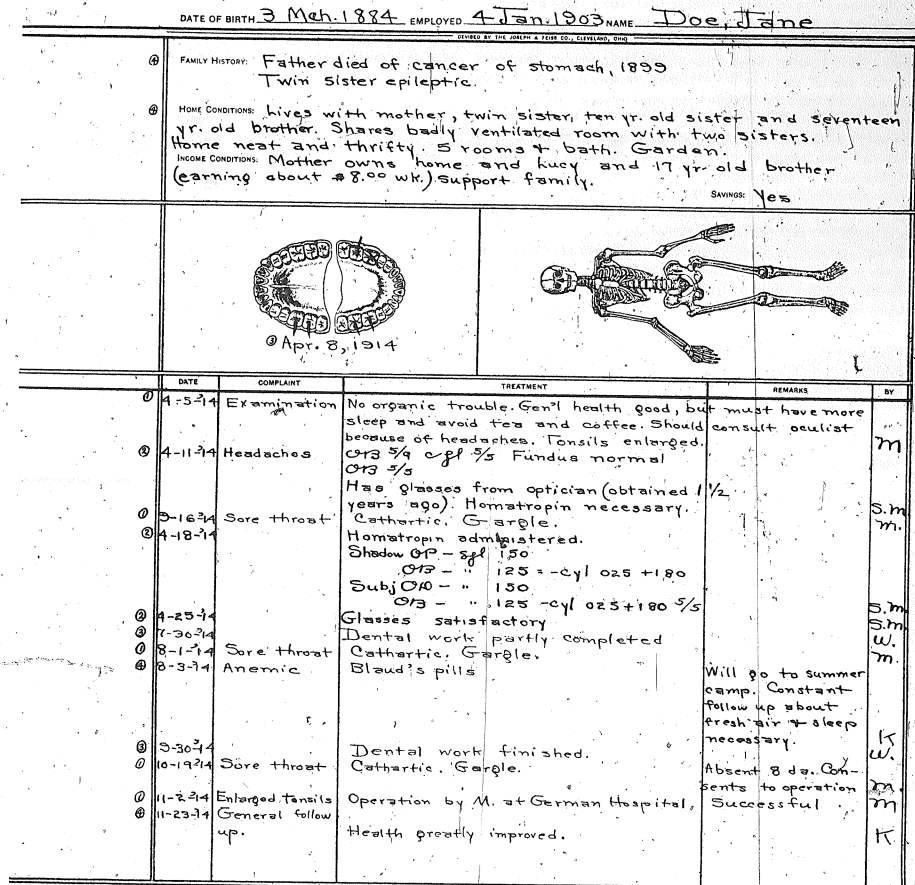 DATE OF BIRTH 3 Mch. 1884 EMPLOYED 4 Jan. 1903 NAME Doe, Jane
DEVISED BY THE JOSEPH & FEISS CO., CLEVELAND, OHIO
④ FAMILY HISTORY: Father died of cancer of stomach, 1899
Twin sister epileptic.
④ HOME CONDITIONS: Lives with mother, twin sister, ten yr. old sister and seventeen
yr. old brother. Shares badly ventilated room with two sisters.
Home neat and thrifty. 5 rooms & bath. Garden.
INCOME CONDITIONS: Mother owns home and Lucy and 17 yr. old brother
(earning about $8.00 wk.) support family.
SAVINGS: Yes
③ Apr. 8, 1914
DATE COMPLAINT TREATMENT REMARKS BY
① 4-5-'14 Examination No organic trouble. Gen'l health good, but must have more
sleep and avoid tea and coffee. Should consult oculist
because of headaches. Tonsils enlarged. M
② 4-11-'14 Headaches 5/9 5/5 Fundus normal
5/5
Has glasses from optician (obtained 1 1/2
years ago). Homatropin necessary. S.M.
① -16-'14 Sore throat Cathartic. Gargle. M.
② 4-18-'14 Homatropin administered.
Shadow - 150
- " 125 = -cyl 025 + 180
Subj - " 150
- " 125 -cyl 025 + 180 5/5 S.M.
② 4-25-'14 Glasses satisfactory S.M.
③ 7-30-'14 Dental work partly completed W.
① 8-1-'14 Sore throat Cathartic. Gargle. M.
④ 8-3-'14 Anemic Blaud's pills Will go to summer
camp. Constant
follow up about
fresh air & sleep
necessary. K
③ 9-30-'14 Dental work finished. W.
① 10-19-'14 Sore throat Cathartic. Gargle. Absent 8 da. Con-
sents to operation M.
① 11-2-'14 Enlarged tonsils Operation by M. at German Hospital, Successful M
④ 11-23-'14 General follow
up. Health greatly improved. K